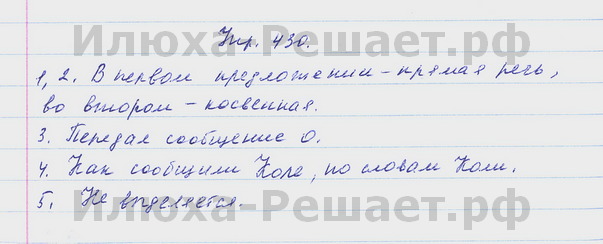 Илюха-Решает.рф
Упр. 430.
1, 2. В первом предложении – прямая речь,
во втором – косвенная.
3. Передал сообщение о.
4. Как сообщили Коле, по словам Коли.
5. Не выделяется.
Илюха-Решает.рф